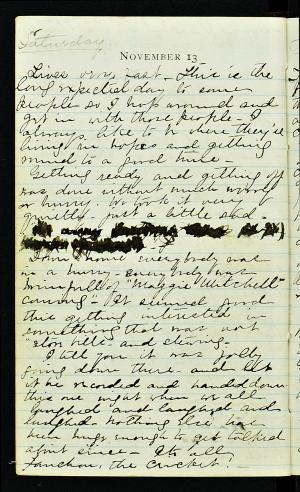 Saturday
November 13
Lives very fast - This is the
long expected day to some
people so I hop around and
get in with those people - I
always like to be where they're
living in hopes and getting
mind to a good time -
Getting ready and getting off
was done without much worry
or hurry. We took it very
quietly - just a little sad.
Down home everybody was
in a hurry - everybody was
brim full of "Maggie Mitchell"
coming" - It seemed good
this getting interested in
something that was not
and
I tell you it was jolly
going down there - and let
it be recorded and handed down
this one night when we all
laughed and laughed and
laughed - nothing else has
been huge enough to get talked
about since - Its all
Fanchon, the Cricket! -